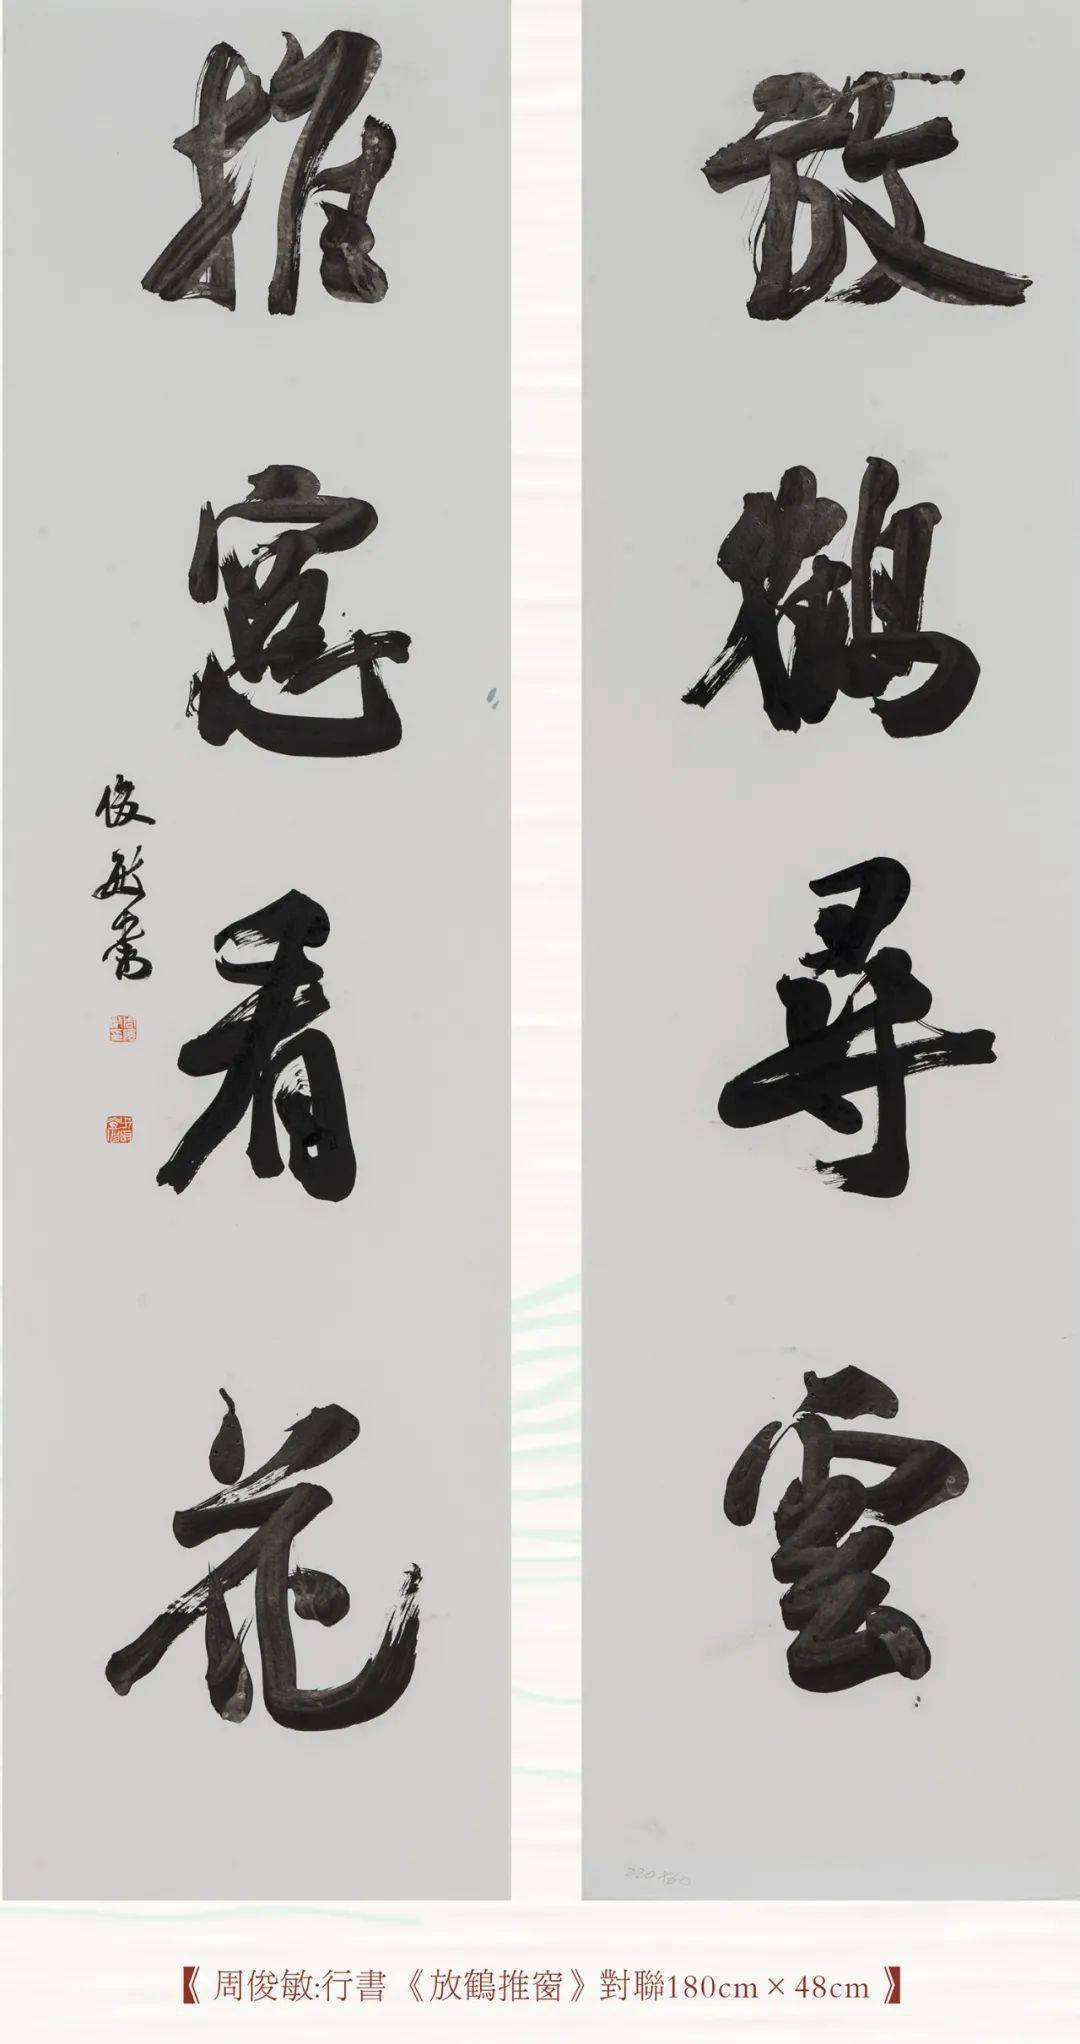 放鶴尋雲
推窓看花
俊敏書
220×60
《周俊敏:行書《放鶴推窗》對聯180cm×48cm》